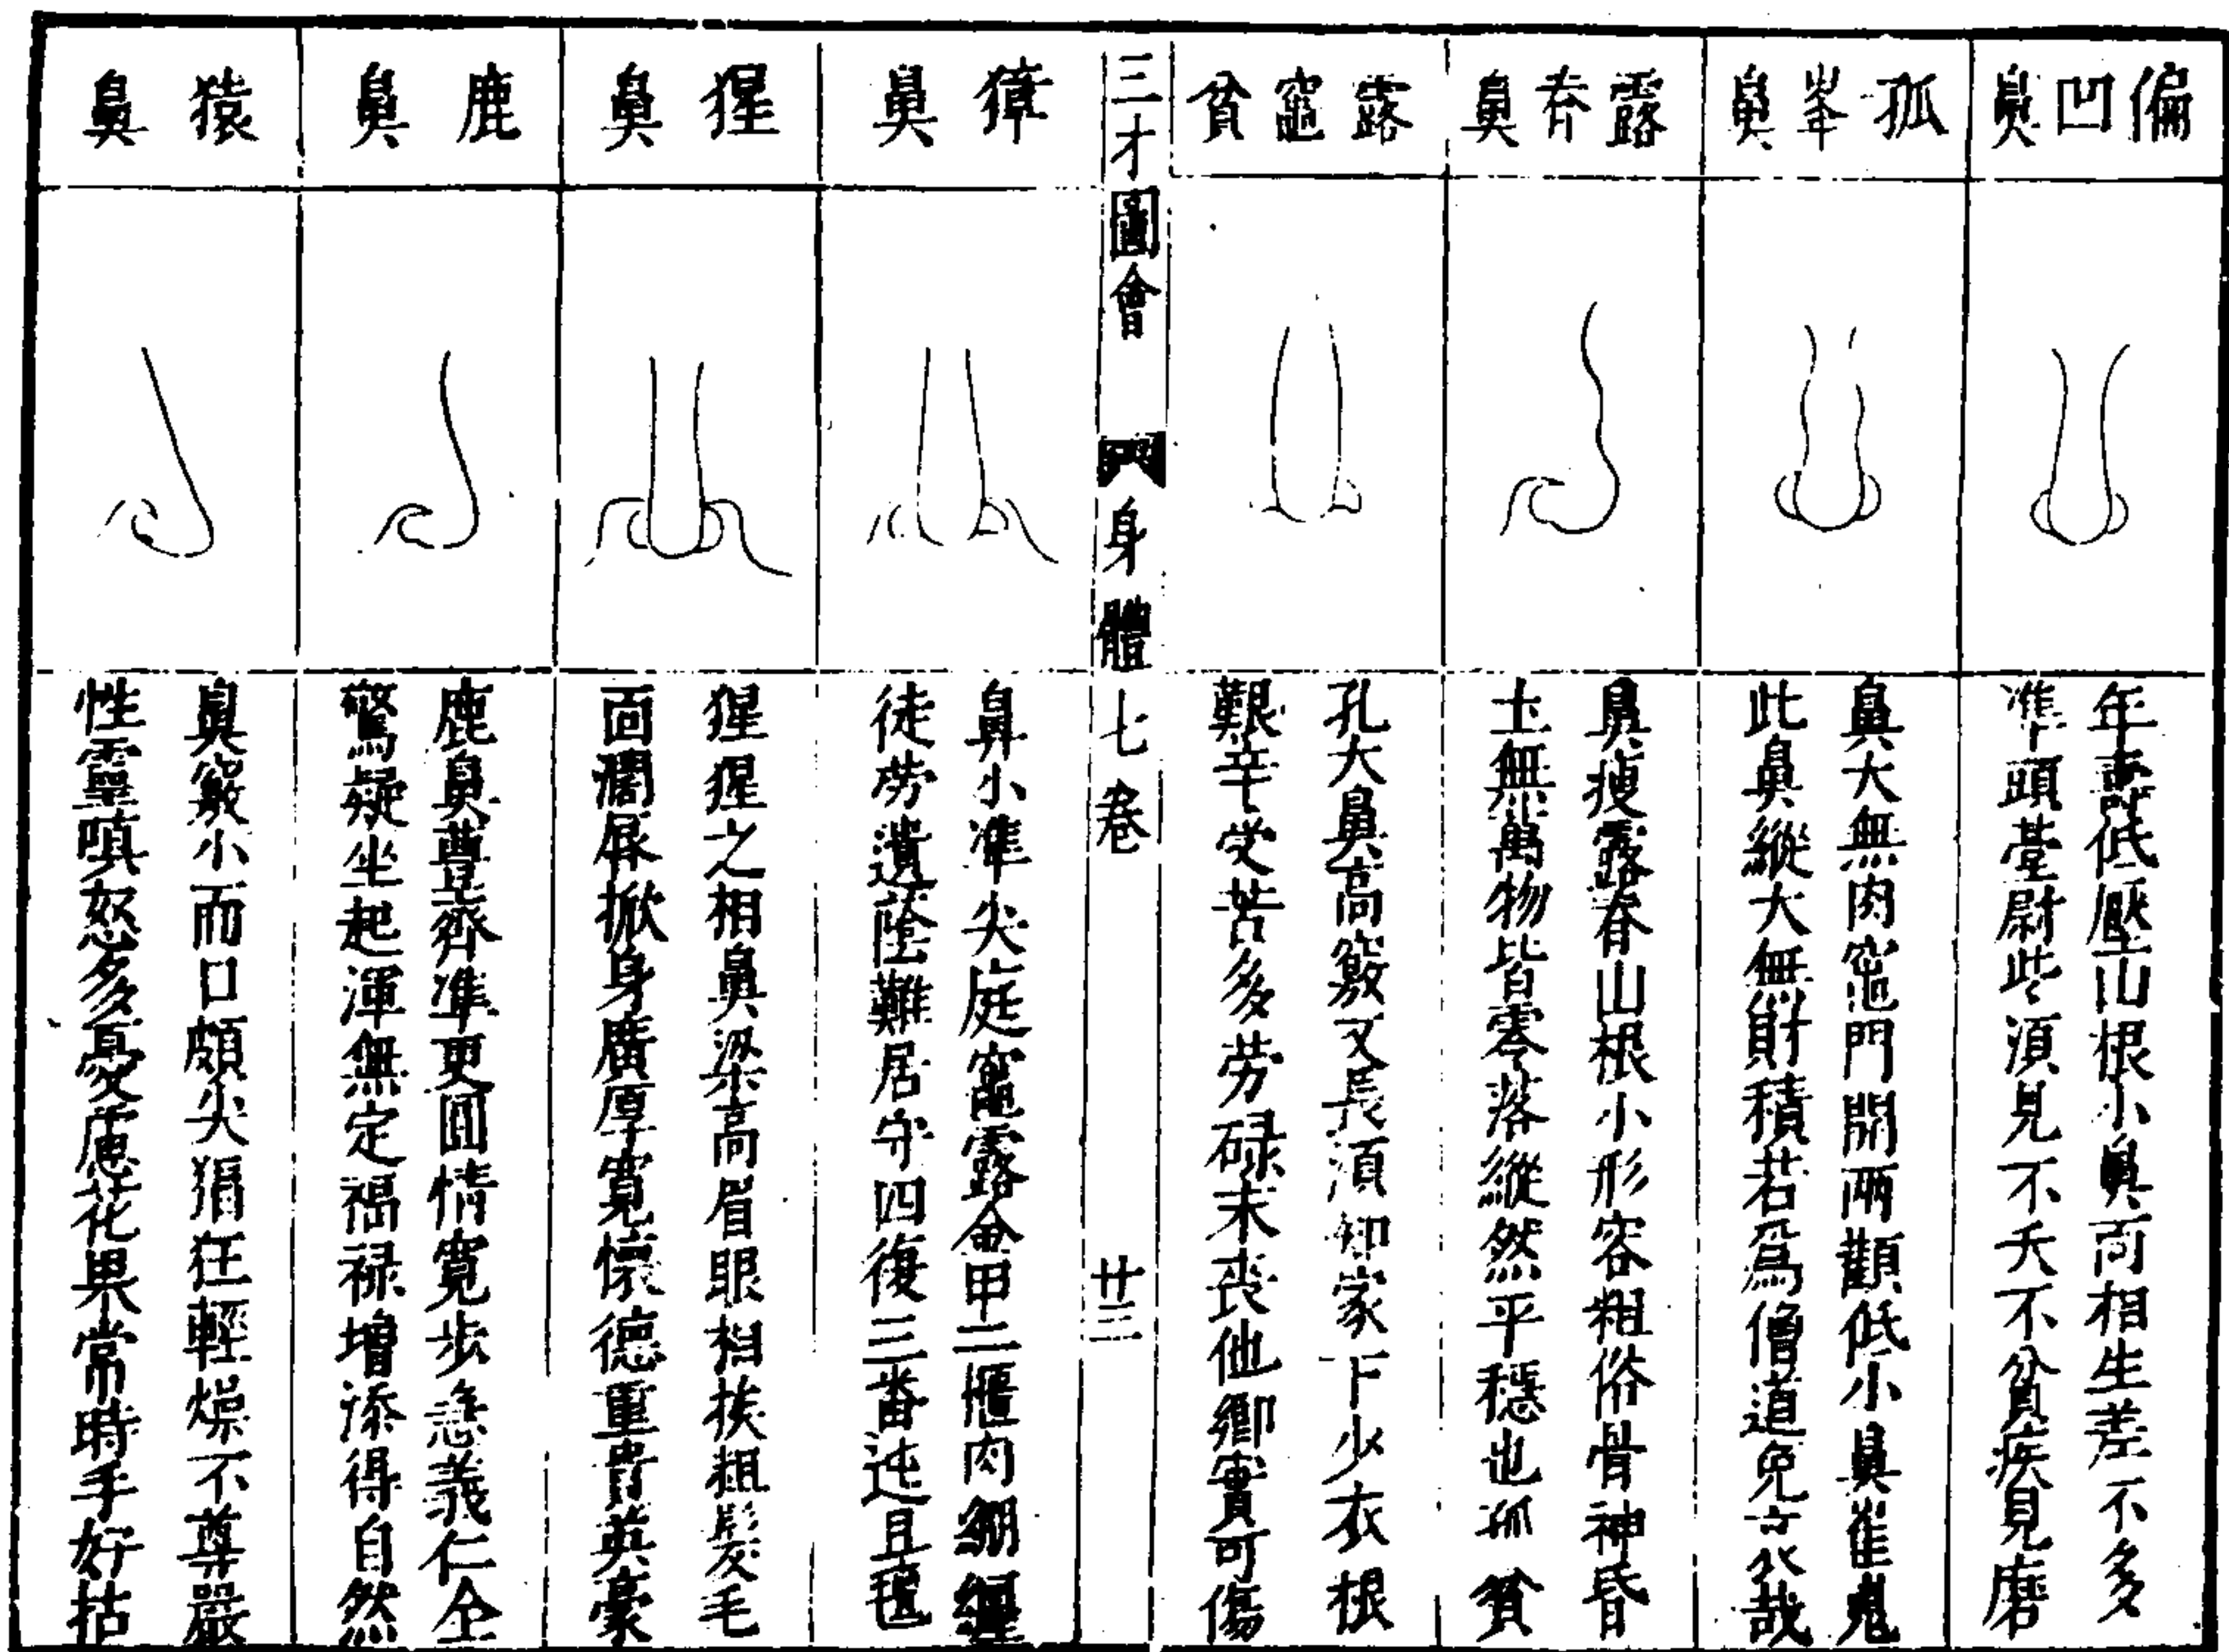 偏凹鼻
年壽低壓山根小鼻面相生差不多
準頭臺尉些須見不夭不貧疾見磨
孤峯鼻
鼻大無肉竈門開兩顴低小鼻崔嵬
此鼻縱大無財積若爲僧道免哉
露脊鼻
鼻瘦露脊山根小形容粗俗骨神昏
土無萬物皆零落縱然平穩也孤貧
露竈貧
孔大鼻高竅又長須知家下少衣根
艱辛受苦多勞碌末喪他鄉實可傷
三才圖會
身體七卷
廿三
獐鼻
鼻小準尖庭竈露金甲二櫃肉綳纏
徒勞遺蔭難居守四復三番迍且邅
猩鼻
猩猩之相鼻梁高眉眼相挨粗髮毛
面濶唇掀身廣厚寬懷德重貴英豪
鹿鼻
鹿鼻豊齊準更圓情寬步急義仁全
驚疑坐起渾無定福禄增添得自然
猿鼻
鼻竅小而口頗尖猖狂輕燥不尊嚴
性靈嗔怒多憂慮花果常時手好拈